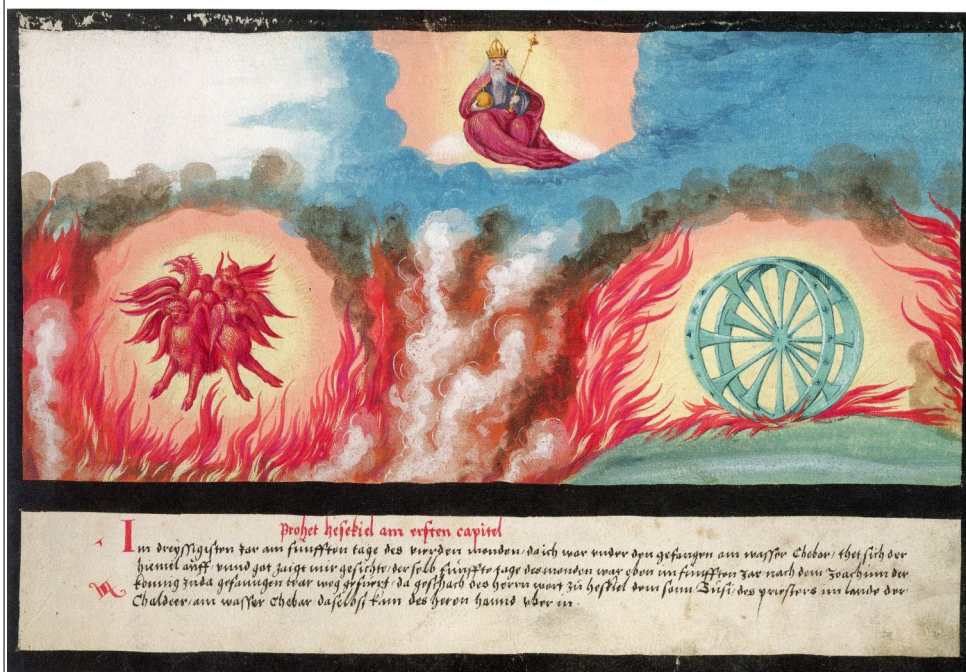 Prohet hesekiel am ersten capitel
Im dreyssigisten Jar am funfften tage des vierden monden, da ich war vnder den gefangen am wasser Chebar, thet sich der
himel auff, vnnd got zaigt mir gesichte, der selb funffte tage des monden war eben im funfften Jar, nach dem Joachim der
konnig Juda gefanngen war weg gefuert, da geschach des herrn wort zu heskiel dem sonn Busi, des priesters im lande der
Chaldeer, am wasser Chebar daselbst kam des heren hannd vber in